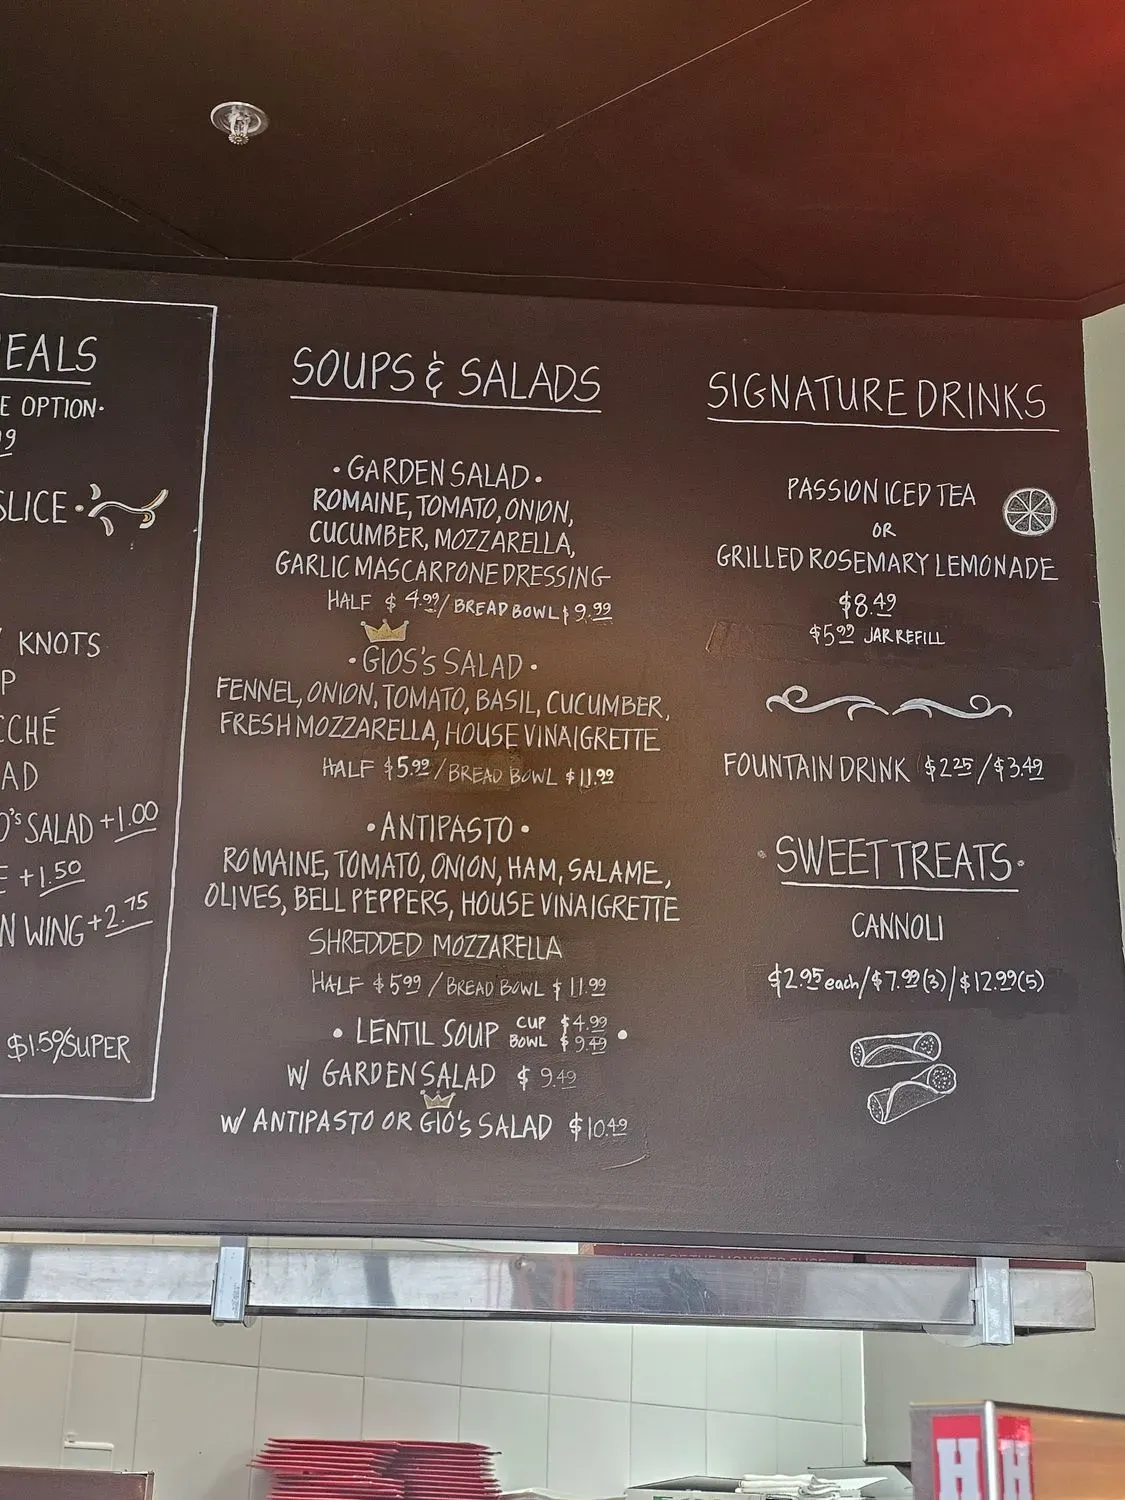 EALS
E OPTION·
9
SLICE·
KNOTS
P
CCHÉ
AD
O's SALAD +1.00
E +1.50
N WING +2.75
$1.50/SUPER
SOUPS & SALADS
· GARDEN SALAD ·
ROMAINE, TOMATO, ONION,
CUCUMBER, MOZZARELLA,
GARLIC MASCARPONE DRESSING
HALF $4.99/BREAD BOWL $9.99
· GIOS's SALAD ·
FENNEL, ONION, TOMATO, BASIL, CUCUMBER,
FRESH MOZZARELLA, HOUSE VINAIGRETTE
HALF $5.99/BREAD BOWL $11.99
· ANTIPASTO ·
ROMAINE, TOMATO, ONION, HAM, SALAME,
OLIVES, BELL PEPPERS, HOUSE VINAIGRETTE
SHREDDED MOZZARELLA
HALF $5.99/BREAD BOWL $11.99
· LENTIL SOUP CUP $4.99 ·
BOWL $9.49
W/ GARDEN SALAD $9.49
W/ ANTIPASTO OR GIO's SALAD $10.49
SIGNATURE DRINKS
PASSION ICED TEA
OR
GRILLED ROSEMARY LEMONADE
$8.49
$5.99 JAR REFILL
FOUNTAIN DRINK $2.25/$3.49
· SWEET TREATS ·
CANNOLI
$2.95 each/$7.99(3)/$12.99(5)
H H